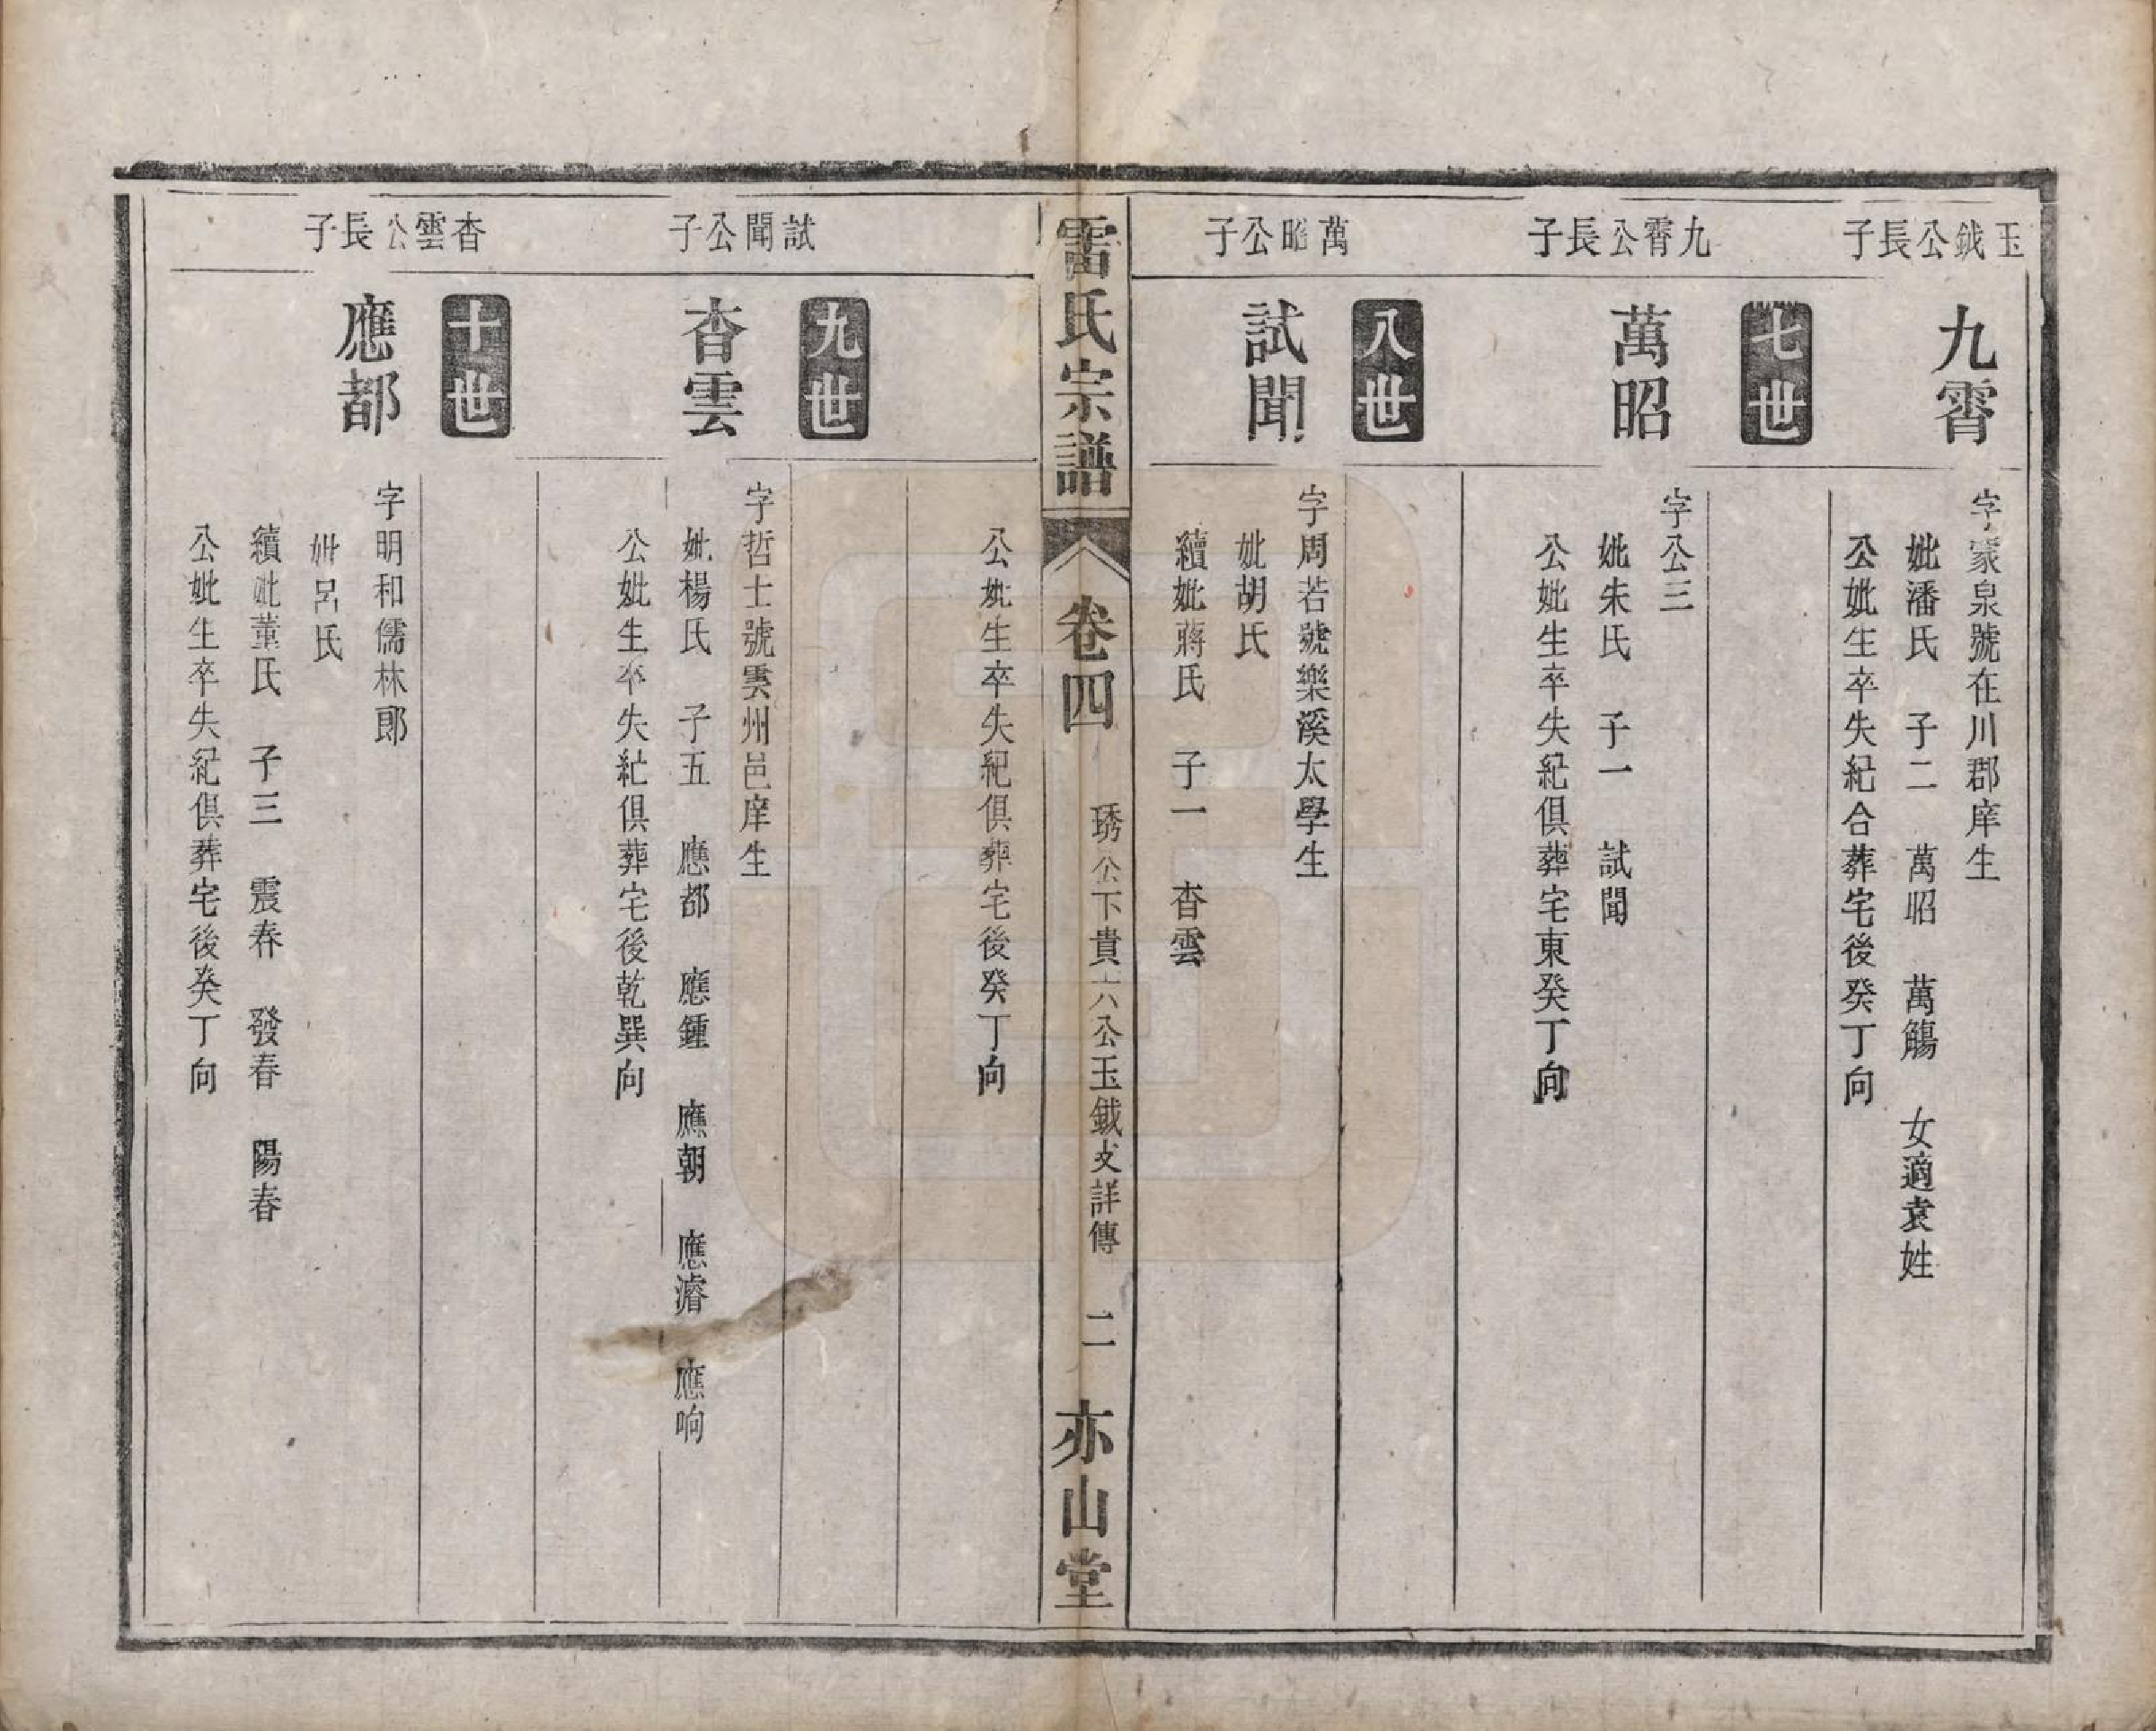 玉鉞公長子
九霄
字蒙泉號在川郡庠生
妣潘氏　子二　萬昭　萬觴　女適袁姓
公妣生卒失紀合葬宅後癸丁向
七世
九霄公長子
萬昭
字公三
妣朱氏　子一　試聞
公妣生卒失紀俱葬宅東癸丁向
八世
萬昭公子
試聞
字周若號樂溪太學生
妣胡氏
續妣蔣氏　子一　杳雲
雷氏宗譜　卷四　琇公下貴六公玉鉞支詳傳　二　亦山堂
公妣生卒失紀俱葬宅後癸丁向
九世
試聞公子
杳雲
字哲士號雲州邑庠生
妣楊氏　子五　應都　應鍾　應朝　應濬　應响
公妣生卒失紀俱葬宅後乾巽向
十世
杳雲公長子
應都
字明和儒林郎
妣呂氏
續妣董氏　子三　震春　發春　陽春
公妣生卒失紀俱葬宅後癸丁向